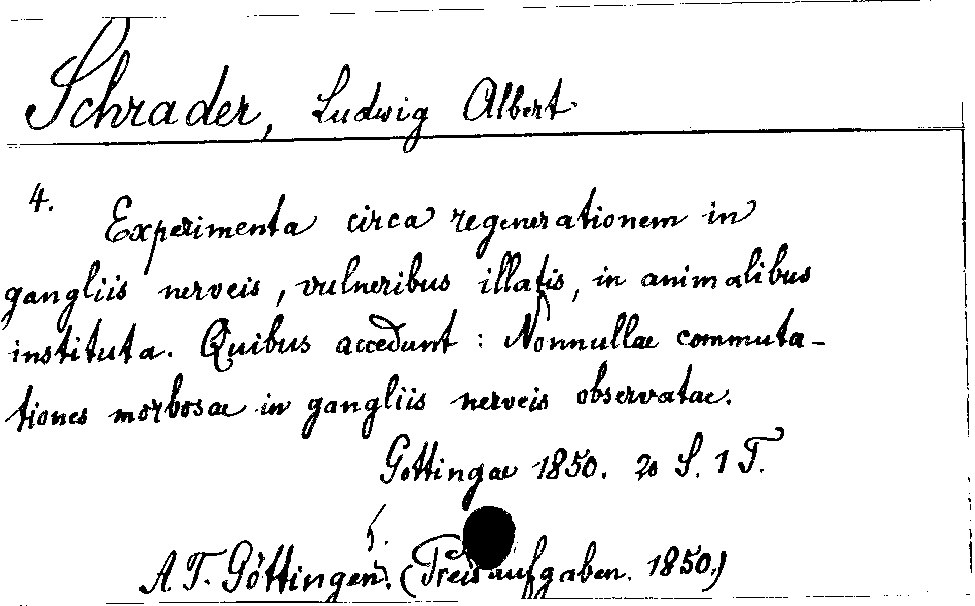 Schrader, Ludwig Albert
4.
Experimenta circa regenerationem in
gangliis nerveis, vulneribus illatis, in animalibus
instituta. Quibus accedunt: Nonnullae commuta-
tiones morbosae in gangliis nerveis observatae.
Gottingae 1850. 20 S. 1 T.
A T. Göttingen. (Preisaufgaben. 1850.)